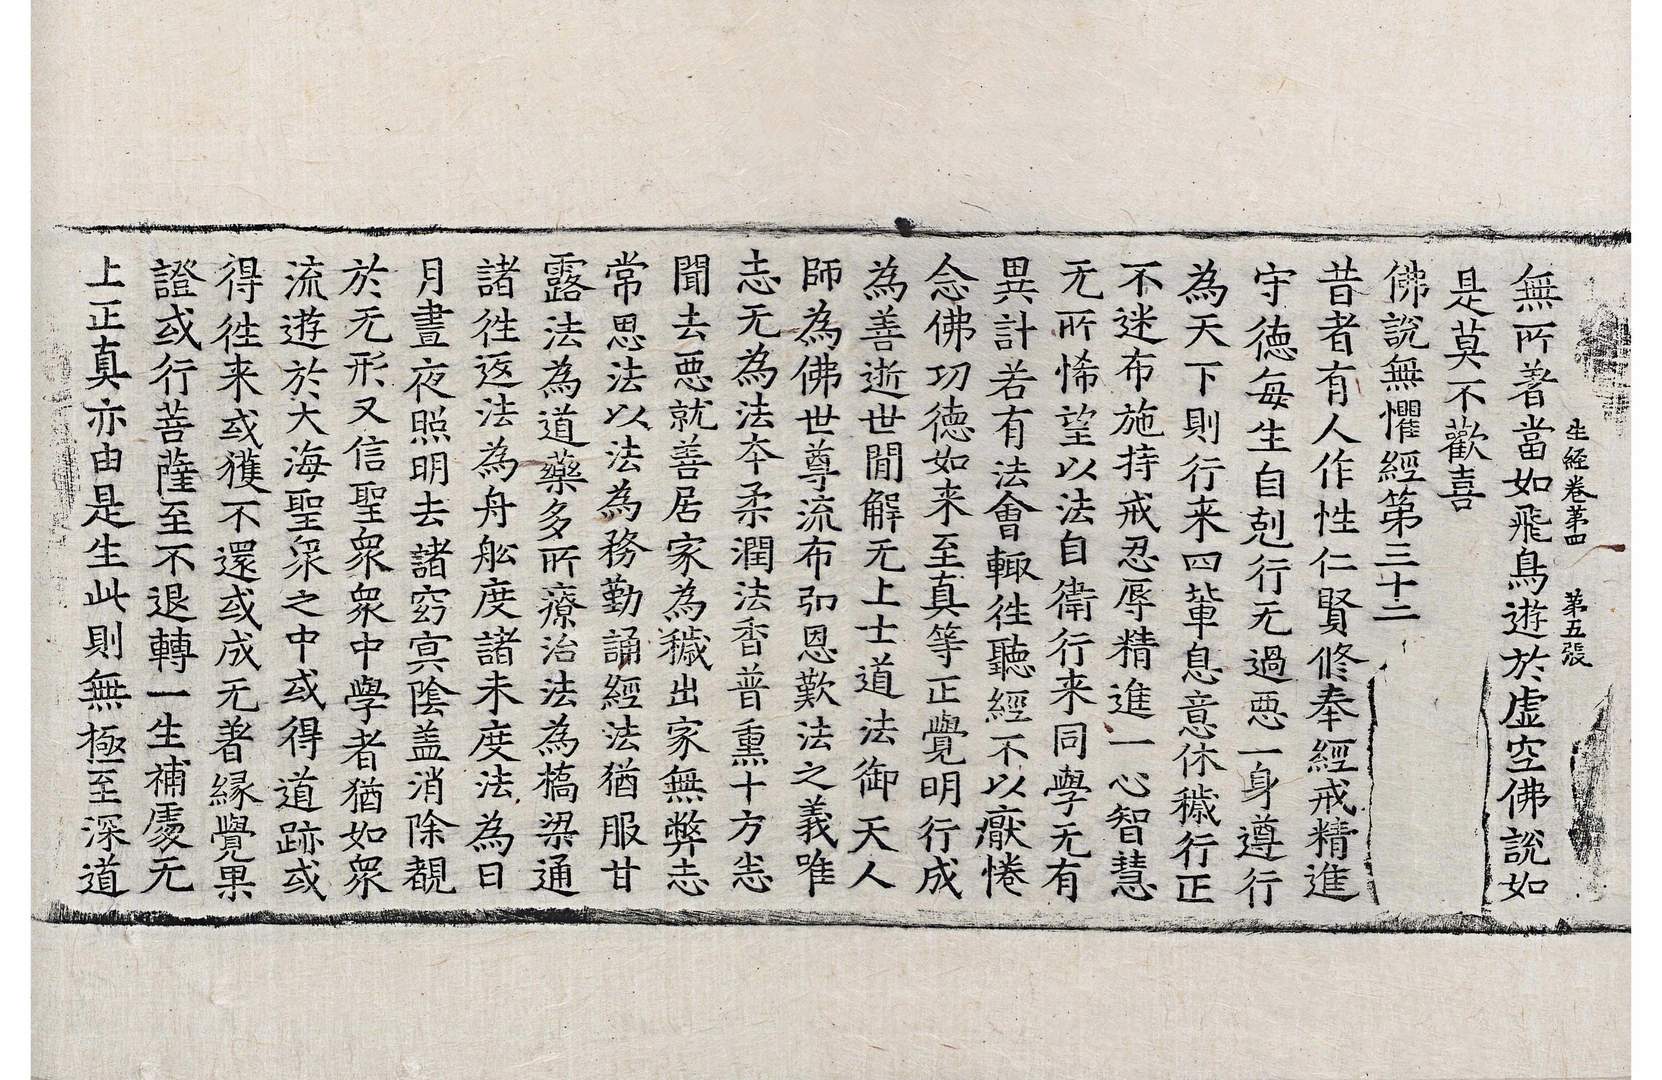 生經卷第四　第五張
無所著當如飛鳥遊於虛空佛說如
是莫不歡喜
佛說無懼經第三十二
昔者有人作性仁賢修奉經戒精進
守德每生自剋行无過惡一身遵行
為天下則行来四軰息意休穢行正
不迷布施持戒忍辱精進一心智慧
无所悕望以法自衛行来同學无有
異計若有法會輙徃聽經不以厭惓
念佛功德如来至真等正覺明行成
為善逝世閒解无上士道法御天人
師為佛世尊流布弘恩歎法之義唯
志无為法夲柔潤法香普熏十方恙
聞去惡就善居家為穢出家無弊志
常思法以法為務勤誦經法猶服甘
露法為道藥多所療治法為橋梁通
諸徃返法為舟舩度諸未度法為日
月晝夜照明去諸窈㝠陰盖消除覩
於无形又信聖衆衆中學者猶如衆
流遊於大海聖衆之中或得道跡或
得徃来或獲不還或成无著縁覺果
證或行菩薩至不退轉一生補處无
上正真亦由是生此則無極至深道